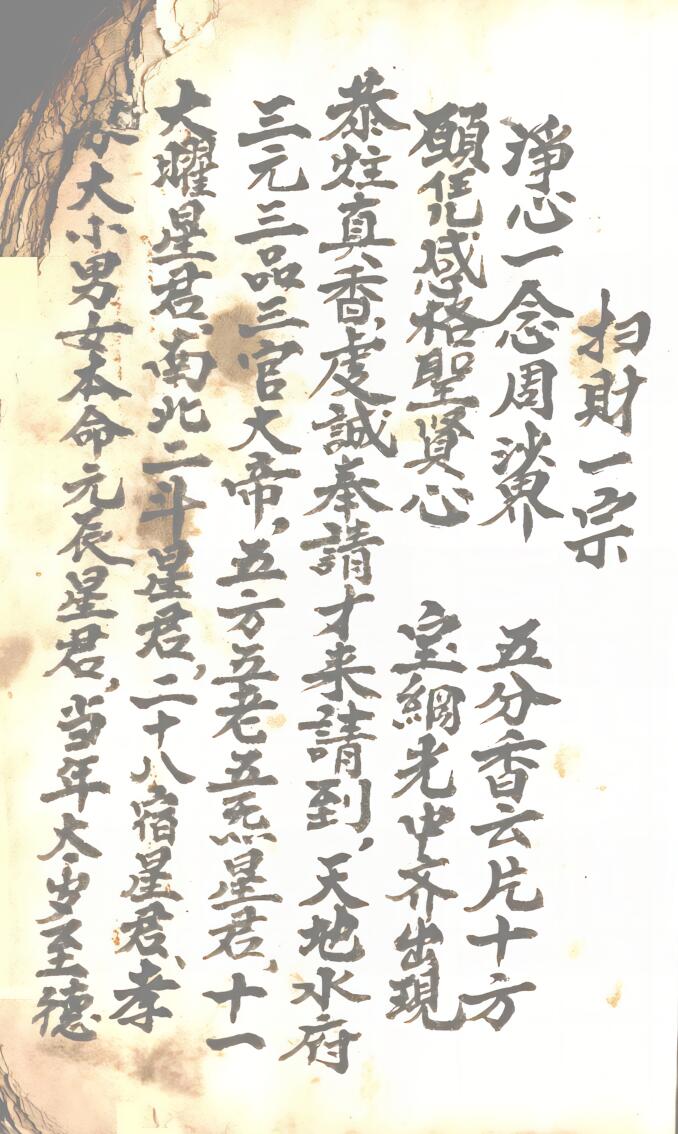 扫財一宗
淨心一念周沙界 五分香云片十方
願凭感格聖賢心 宝網光中齐出現
恭炷真香,虔誠奉請才来請到,天地水府
三元三品三官大帝,五方五老五炁星君、十一
大曜星君、南北二斗星君,二十八宿星君、孝
家大小男女本命元辰星君,当年太岁至德